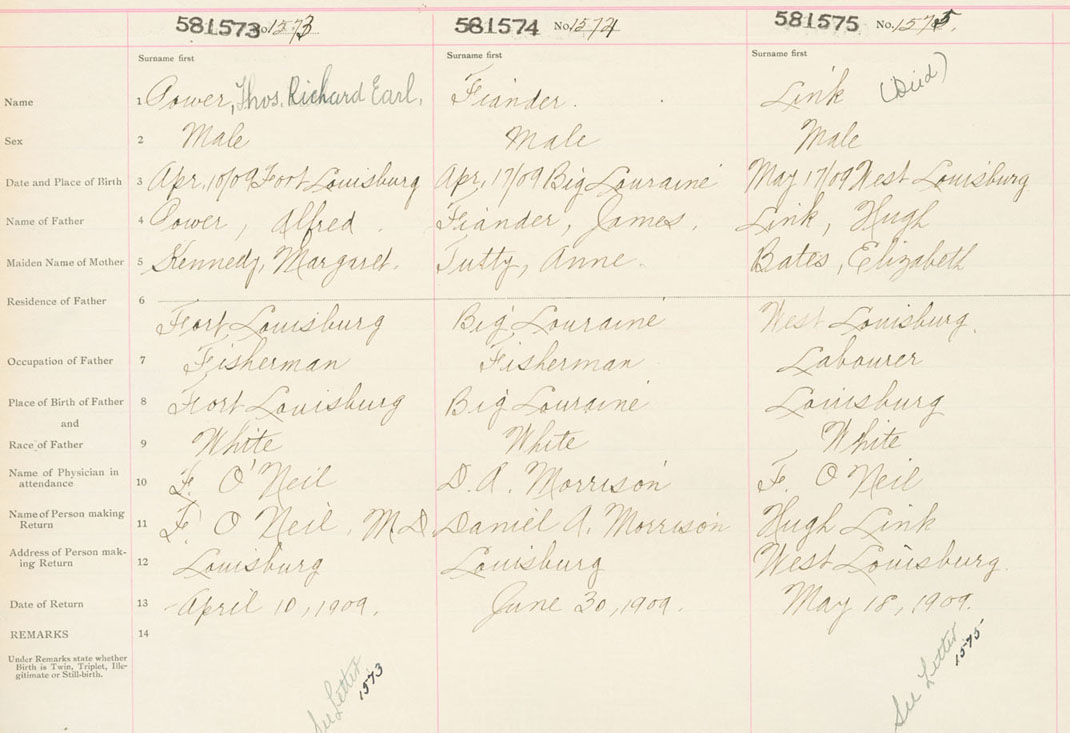 581573 No. 1573 581574 No. 1574 581575 No. 1575.
Surname first Surname first Surname first
Name 1 Power, Thos. Richard Earl. Fiander. Link (Died)
Sex 2 Male Male Male
Date and Place of Birth 3 Apr. 10/09 Fort Louisburg Apr. 17/09 Big Louraine May 17/09 West Louisburg
Name of Father 4 Power, Alfred. Fiander, James. Link, Hugh
Maiden Name of Mother 5 Kennedy, Margaret. Tutty, Anne. Bates, Elizabeth
Residence of Father 6
Fort Louisburg Big Louraine West Louisburg.
Occupation of Father 7 Fisherman Fisherman Labourer
Place of Birth of Father 8 Fort Louisburg Big Louraine Louisburg
and
Race of Father 9 White White White
Name of Physician in
attendance 10 F. O'Neil D. A. Morrison F. O Neil
Name of Person making
Return 11 F. O Neil, M.D. Daniel A. Morrison Hugh Link
Address of Person mak-
ing Return 12 Louisburg Louisburg West Louisburg.
Date of Return 13 April 10, 1909. June 30, 1909. May 18, 1909.
REMARKS 14
Under Remarks state whether
Birth is Twin, Triplet, Ille-
gitimate or Still-birth.
See Letter 1573
See Letter 1575